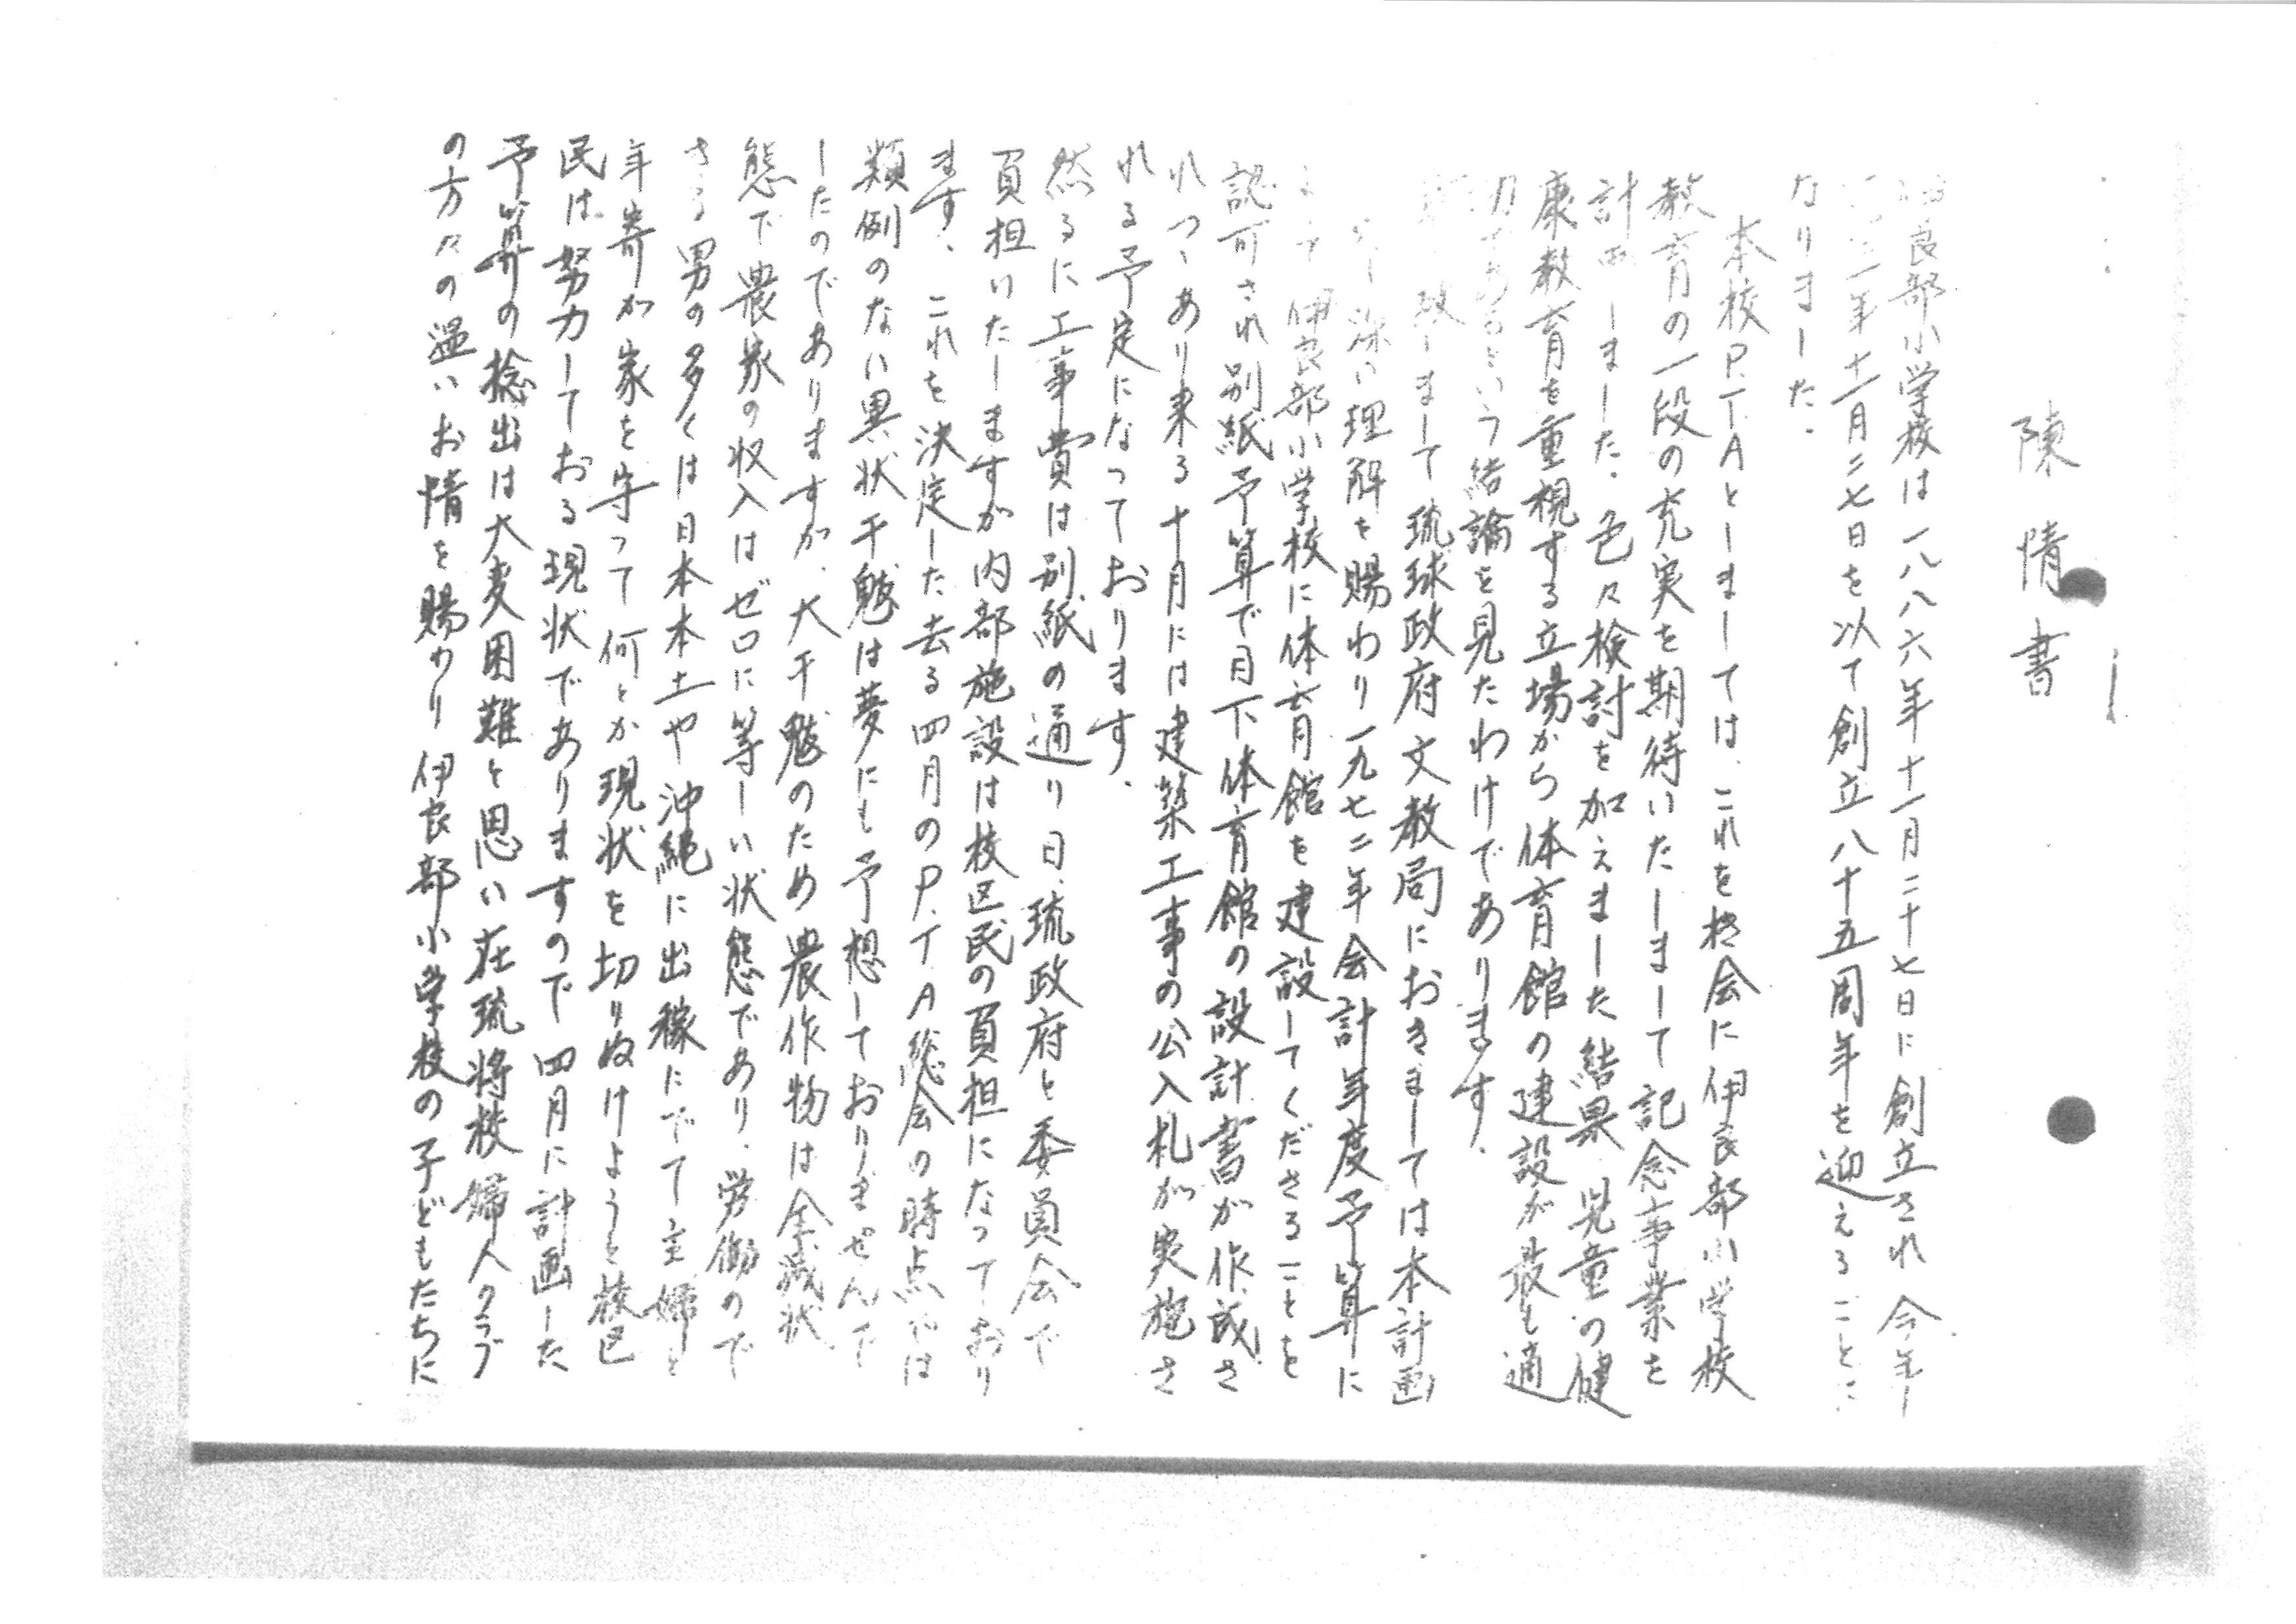 陳情書
良部小学校は一八八六年十一月二十七日に創立され 今年
年十一月二七日を以て創立八十五周年を迎えることに
なりました.
本校P.T.Aとしましては、これを機会に伊良部小学校
教育の一段の充実を期待いたしまして記念事業を
計画しました. 色々検討を加えました結果 児童の健
康教育を重視する立場から体育館の建設が最も適
切であるという結論を見たわけであります.
致しまして琉球政府文教局におきましては本計画
深い理解を賜わり一九七二年会計年度予算に
伊良部小学校に体育館を建設してくださることを
認可され別紙予算で目下体育館の設計書が作成さ
れつゝあり来る十月には建築工事の公入札が実施さ
れる予定になっております.
然るに工事費は別紙の通り日.琉政府と委員会で
負担いたしますが内部施設は校区民の負担になっており
ます. これを決定した去る四月のP.T.A総会の時点では
類例のない異状干魃は夢にも予想しておりませんで
したのでありますが、大干魃のため農作物は全滅状
態下農家の収入はゼロに等しい状態であり、労働ので
きる男の多くは日本本土や沖縄に出稼にでて主婦と
年寄が家を守って何とか現状を切りぬけようと校区
民は努力しておる現状でありますので四月に計画した
予算の捻出は大変困難と思い在琉将校婦人クラブ
の方々の温いお情を賜わり伊良部小学校の子どもたちに